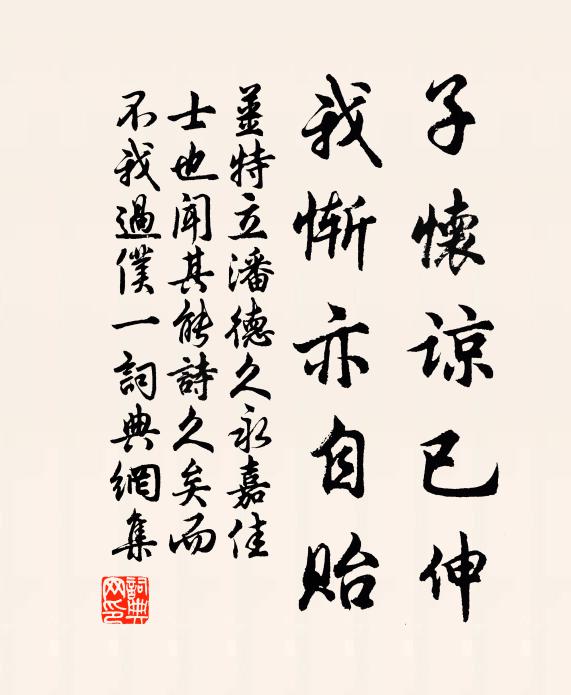 子懷諒已伸
我慚亦自貽
姜特立潘德久永嘉佳
士也聞其能詩久矣而
不我過僕一詞典網集
詞典網印